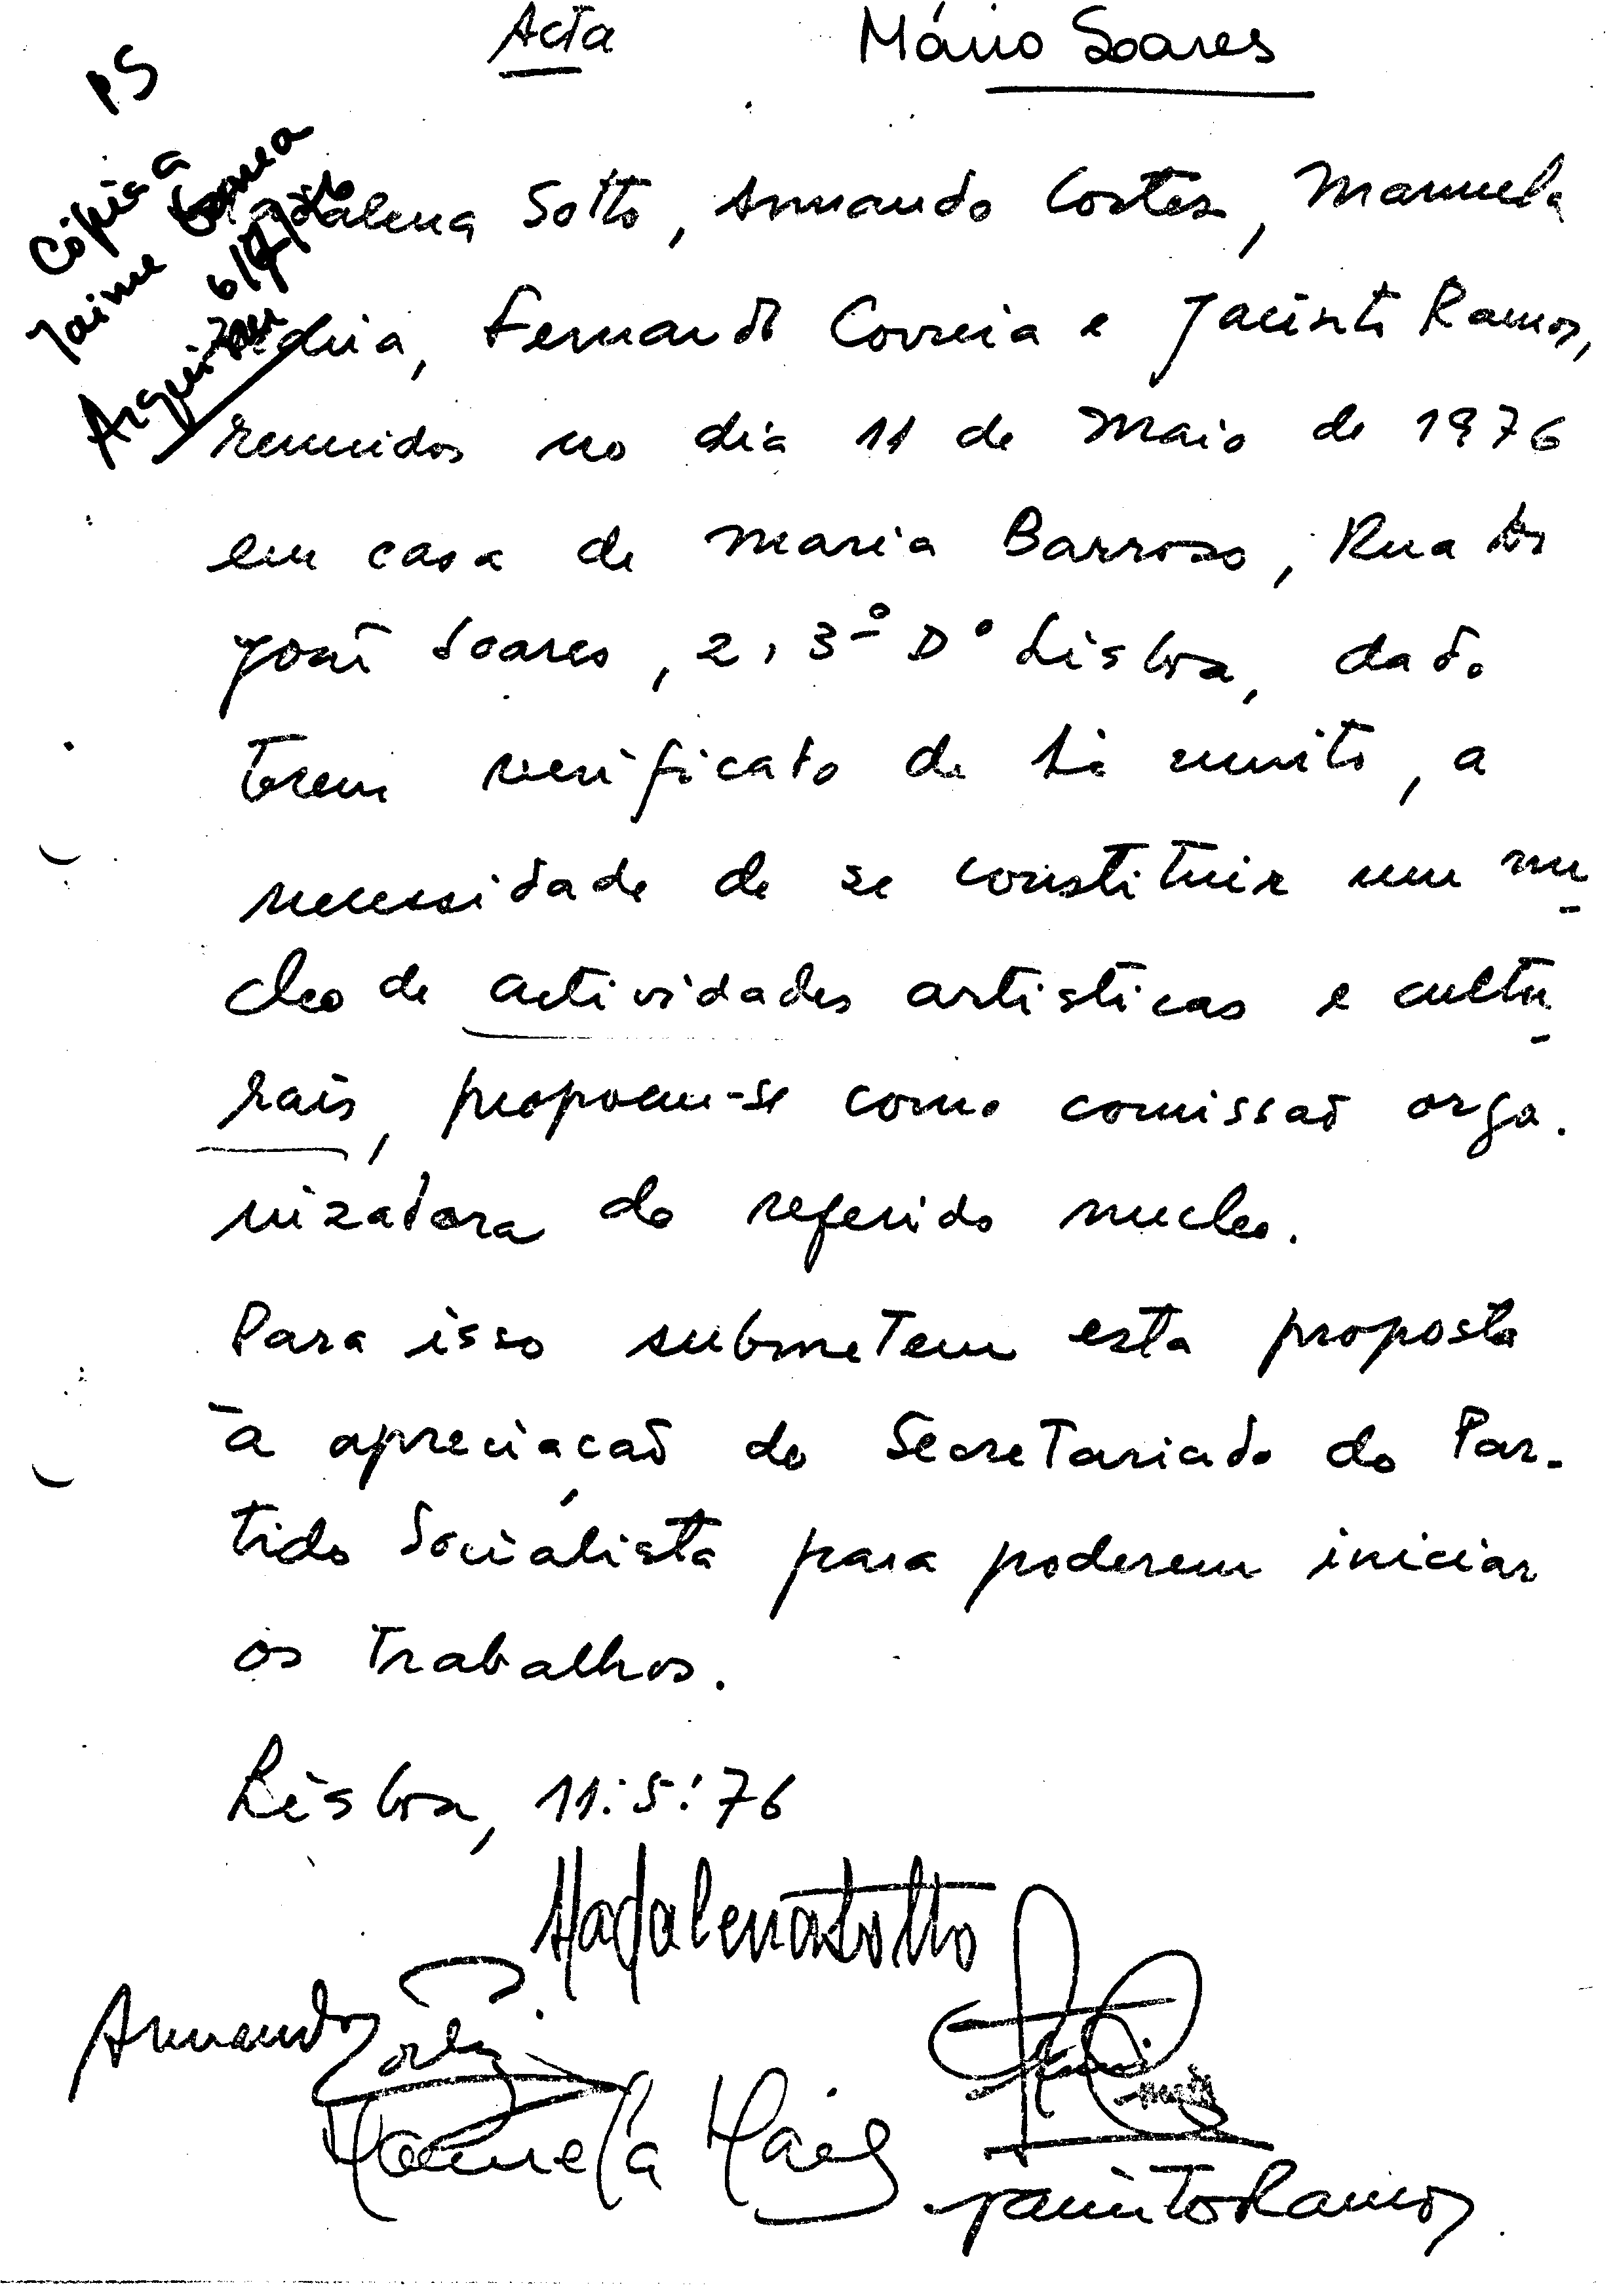 Acta Mário Soares
PS
Cópia a
Jaime Gama
6/7/76
Arquivar
Madalena Sotto, Armando Cortez, Manuela
, Fernando Correia e Jacinto Ramos,
reunidos no dia 11 de Maio de 1976
em casa de Maria Barroso, Rua Dr
João Soares, 2, 3º Dº Lisboa, dado
terem verificado de há muito, a
necessidade de se constituir um nu-
cleo de actividades artisticas e cultu-
rais, propoem-se como comissão orga-
nizadora do referido nucleo.
Para isso submetem esta proposta
à apreciação do Secretariado do Par-
tido Socialista para poderem iniciar
os trabalhos.
Lisboa, 11:5:76
Madalena Sotto
Armando Cortez
Manuela
Jacinto Ramos